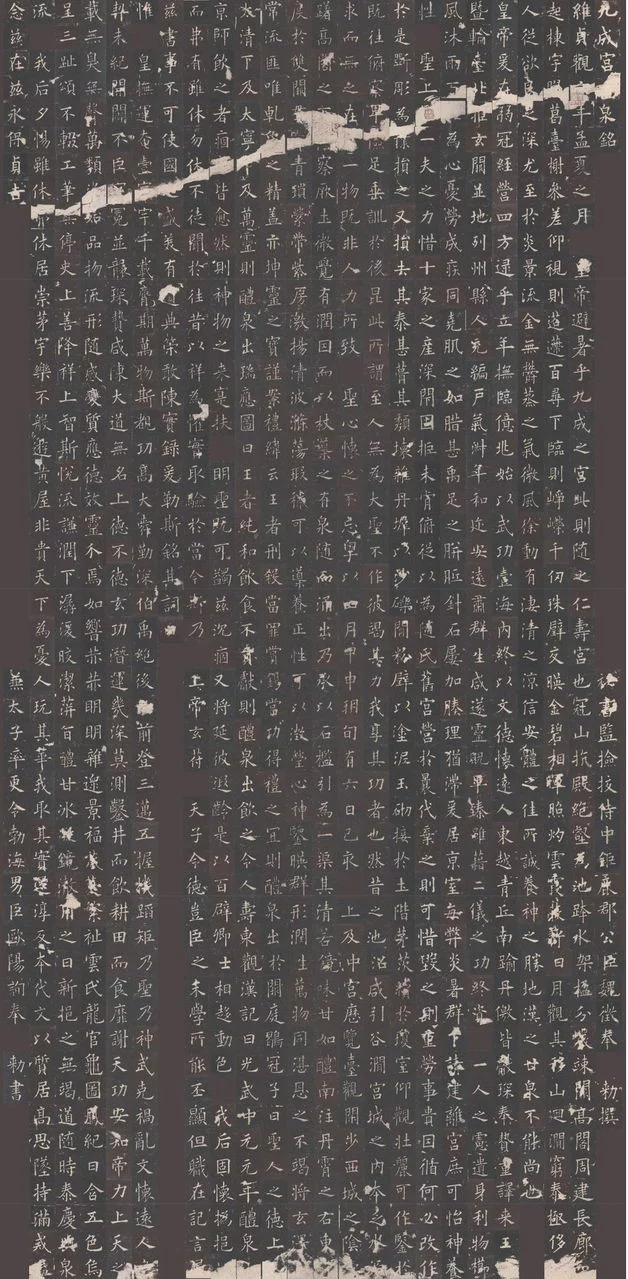 九成宮醴泉銘 秘書監撿挍侍中鉅鹿郡公臣魏徵奉 勑撰
維貞觀六年孟夏之月 皇帝避暑乎九成之宮此則隨之仁壽宮也冠山抗殿絕壑為池跨水架楹分巖竦闕高閣周建長廊四
起棟宇膠葛臺榭參差仰視則迢遰百尋下臨則崢嶸千仞珠璧交暎金碧相暉照灼雲霞蔽虧日月觀其移山迴澗窮泰極侈
人從欲良足深尤至於炎景流金無鬱蒸之氣微風徐動有淒清之涼信安體之佳所誠養神之勝地漢之甘泉不能尚也
皇帝爰在弱冠經營四方逮乎立年撫臨億兆始以武功壹海內終以文德懷遠人東越青丘南踰丹儌皆獻琛奉贄重譯來王
暨輪臺北拒玄闕並地列州縣人充編戶氣淑年和迩安遠肅群生咸遂靈貺畢臻雖藉二儀之功終資 一人之慮遺身利物櫛
風沐雨為心憂勞成疾同堯肌之如腊甚禹足之胼胝針石屢加腠理猶滯爰居京室每弊炎暑群下請建離宮庶可怡神養
性 聖上一夫之力惜十家之產深閉固拒未肯俯從以為隨氏舊宮營於曩代棄之則可惜毀之則重勞事貴因循何必改作
於是斲彫為樸損之又損去其泰甚葺其頹壞雜丹墀以沙礫間粉壁以塗泥玉砌接於土階茅茨續於瓊室仰觀壯麗可作鑒於
既往俯察卑儉足垂訓於後昆此所謂至人無為大聖不作彼竭其力我享其功者也然昔之池沼咸引谷澗宮城之內本乏水
求而無之在一物既非人力所致 聖心懷之不忘粵以四月甲申朔旬有六日己亥 上及中宮歷覽臺觀閑步西城之陰
躇高閣之下察厥土微覺有潤因而以杖導之有泉隨而涌出乃承以石檻引為一渠其清若鏡味甘如醴南注丹霄之右東
度於雙闕青瑣縈帶紫房激揚清波滌蕩瑕穢可以導養正性可以澂瑩心神鑒暎群形潤生萬物同湛恩之不竭將玄
常流匪唯乾象之精蓋亦坤靈之寶謹案禮緯云王者刑殺當罪賞錫當功得禮之宜則醴泉出於闕庭鶡冠子曰聖人之德上
太清下及太寧中及萬靈則醴泉出瑞應圖曰王者純和飲食不貢獻則醴泉出飲之令人壽東觀漢記曰光武中元元年醴泉
京師飲之者痼皆愈然則神物之來寔扶 明聖既可蠲茲沉痼又將延彼遐齡是以百辟卿士相趨動色 我后固懷撝挹
而弗有雖休勿休不徒聞於往昔以祥為懼實取驗於當今斯乃 上帝玄符 天子令德豈臣之末學所能丕顯但職在記言
茲書事不可使國盛美有遺典策敢陳實錄爰勒斯銘其詞曰
惟 皇撫運奄壹寰宇千載膺期萬物斯覩功高大舜勤深伯禹絕後光前登三邁五握機蹈矩乃聖乃神武克禍亂文懷遠人
契未紀開闢不臣冠冕並襲琛贄咸陳大道無名上德不德玄功潛運幾深莫測鑿井而飲耕田而食靡謝天功安知帝力上天之
載無臭無聲萬類資始品物流形隨感變質應德效靈介焉如響赫赫明明雜遝景福葳蕤繁祉雲氏龍官龜圖鳳紀日含五色烏
呈三趾頌不輟工筆無停史上善降祥上智斯悅流謙潤下潺湲皎潔蓱旨醴甘冰凝鏡澈用之日新挹之無竭道隨時泰慶與泉
流 我后夕惕雖休弗休居崇茅宇樂不般遊黃屋非貴天下為憂人玩其華我取其實還淳反本代文以質居高思墜持滿戒溢
念茲在茲永保貞吉 兼太子率更令勃海男臣歐陽詢奉 勑書